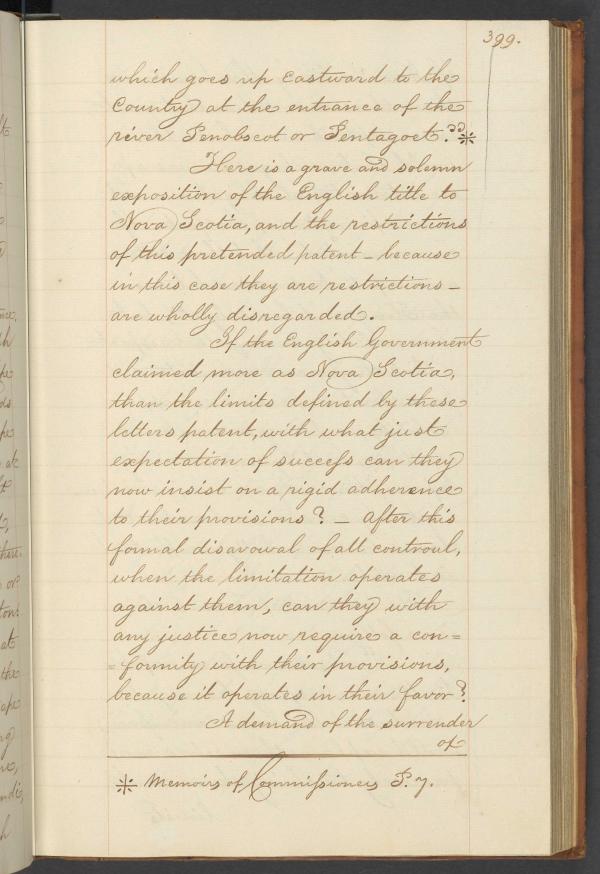 399.
which goes up Eastward to the
Country at the entrance of the
river Penobscot or Pentagoet."*
Here is a grave and solemn
exposition of the English title to
Nova Scotia, and the restrictions
of this pretended patent - because
in this case they are restrictions -
are wholly disregarded.
If the English Government
claimed more as Nova Scotia,
than the limits defined by these
letters patent, with what just
expectation of success can they
now insist on a rigid adherence
to their provisions? - After this
formal disavowal of all controul,
when the limitation operates
against them, can they with
any justice now require a con=
=formity with their provisions,
because it operates in their favor?
A demand of the surrender
of
* Memoirs of Commissioners P. 7.